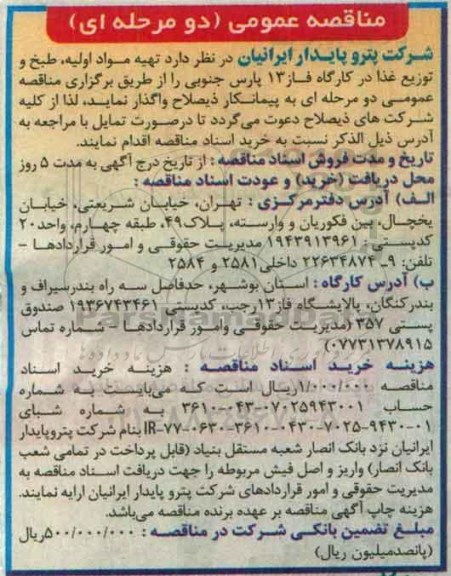 مناقصه عمومی (دو مرحله ای)
شرکت پترو پایدار ایرانیان در نظر دارد تهیه مواد اولیه، طبخ و
توزیع غذا در کارگاه فاز ۱۳ پارس جنوبی را از طریق برگزاری مناقصه
عمومی دو مرحله ای به پیمانکار ذیصلاح واگذار نماید، لذا از کلیه
شرکت های ذیصلاح دعوت می‌گردد تا درصورت تمایل با مراجعه به
آدرس ذیل الذکر نسبت به خرید اسناد مناقصه اقدام نمایند.
تاریخ و مدت فروش اسناد مناقصه : از تاریخ درج آگهی به مدت ۵ روز
محل دریافت (خرید) و عودت اسناد مناقصه :
الف) آدرس دفترمرکزی : تهران، خیابان شریعتی، خیابان
یخچال، بین فکوریان و وارسته، پلاک۴۹، طبقه چهارم، واحد۲۰
کدپستی : ۱۹۴۳۹۱۳۹۶۱ مدیریت حقوقی و امور قراردادها -
تلفن: ۹_ ۲۲۶۳۴۸۷۴ داخلی۲۵۸۱ و ۲۵۸۴
ب) آدرس کارگاه : استان بوشهر، حدفاصل سه راه بندرسیراف و
بندرکنگان، پالایشگاه فاز۱۳رجب، کدپستی ۱۹۳۶۷۴۳۴۶۱ صندوق
پستی ۳۵۷ (مدیریت حقوقی وامور قراردادها - شماره تماس
۰۷۷۳۱۳۷۸۹۱۵)
هزینه خرید اسناد مناقصه : هزینه خرید اسناد
مناقصه ۱/۰۰۰/۰۰۰ریال است که می‌بایست به شماره
حساب ۳۶۱۰-۰۴۳-۷۰۲۵۹۴۳۰۰۱ به شماره شبای
IR-۷۷-۰۶۳۰-۳۶۱۰-۰۴۳۰-۷۰۲۵-۹۴۳۰-۰۱ بنام شرکت پتروپایدار
ایرانیان نزد بانک انصار شعبه مستقل بنیاد (قابل پرداخت در تمامی شعب
بانک انصار) واریز و اصل فیش مربوطه را جهت دریافت اسناد مناقصه به
مدیریت حقوقی و امور قراردادهای شرکت پترو پایدار ایرانیان ارایه نمایند.
هزینه چاپ آگهی مناقصه بر عهده برنده مناقصه می‌باشد.
مبلغ تضمین بانکی شرکت در مناقصه : ۵۰۰/۰۰۰/۰۰۰ریال
(پانصدمیلیون ریال)